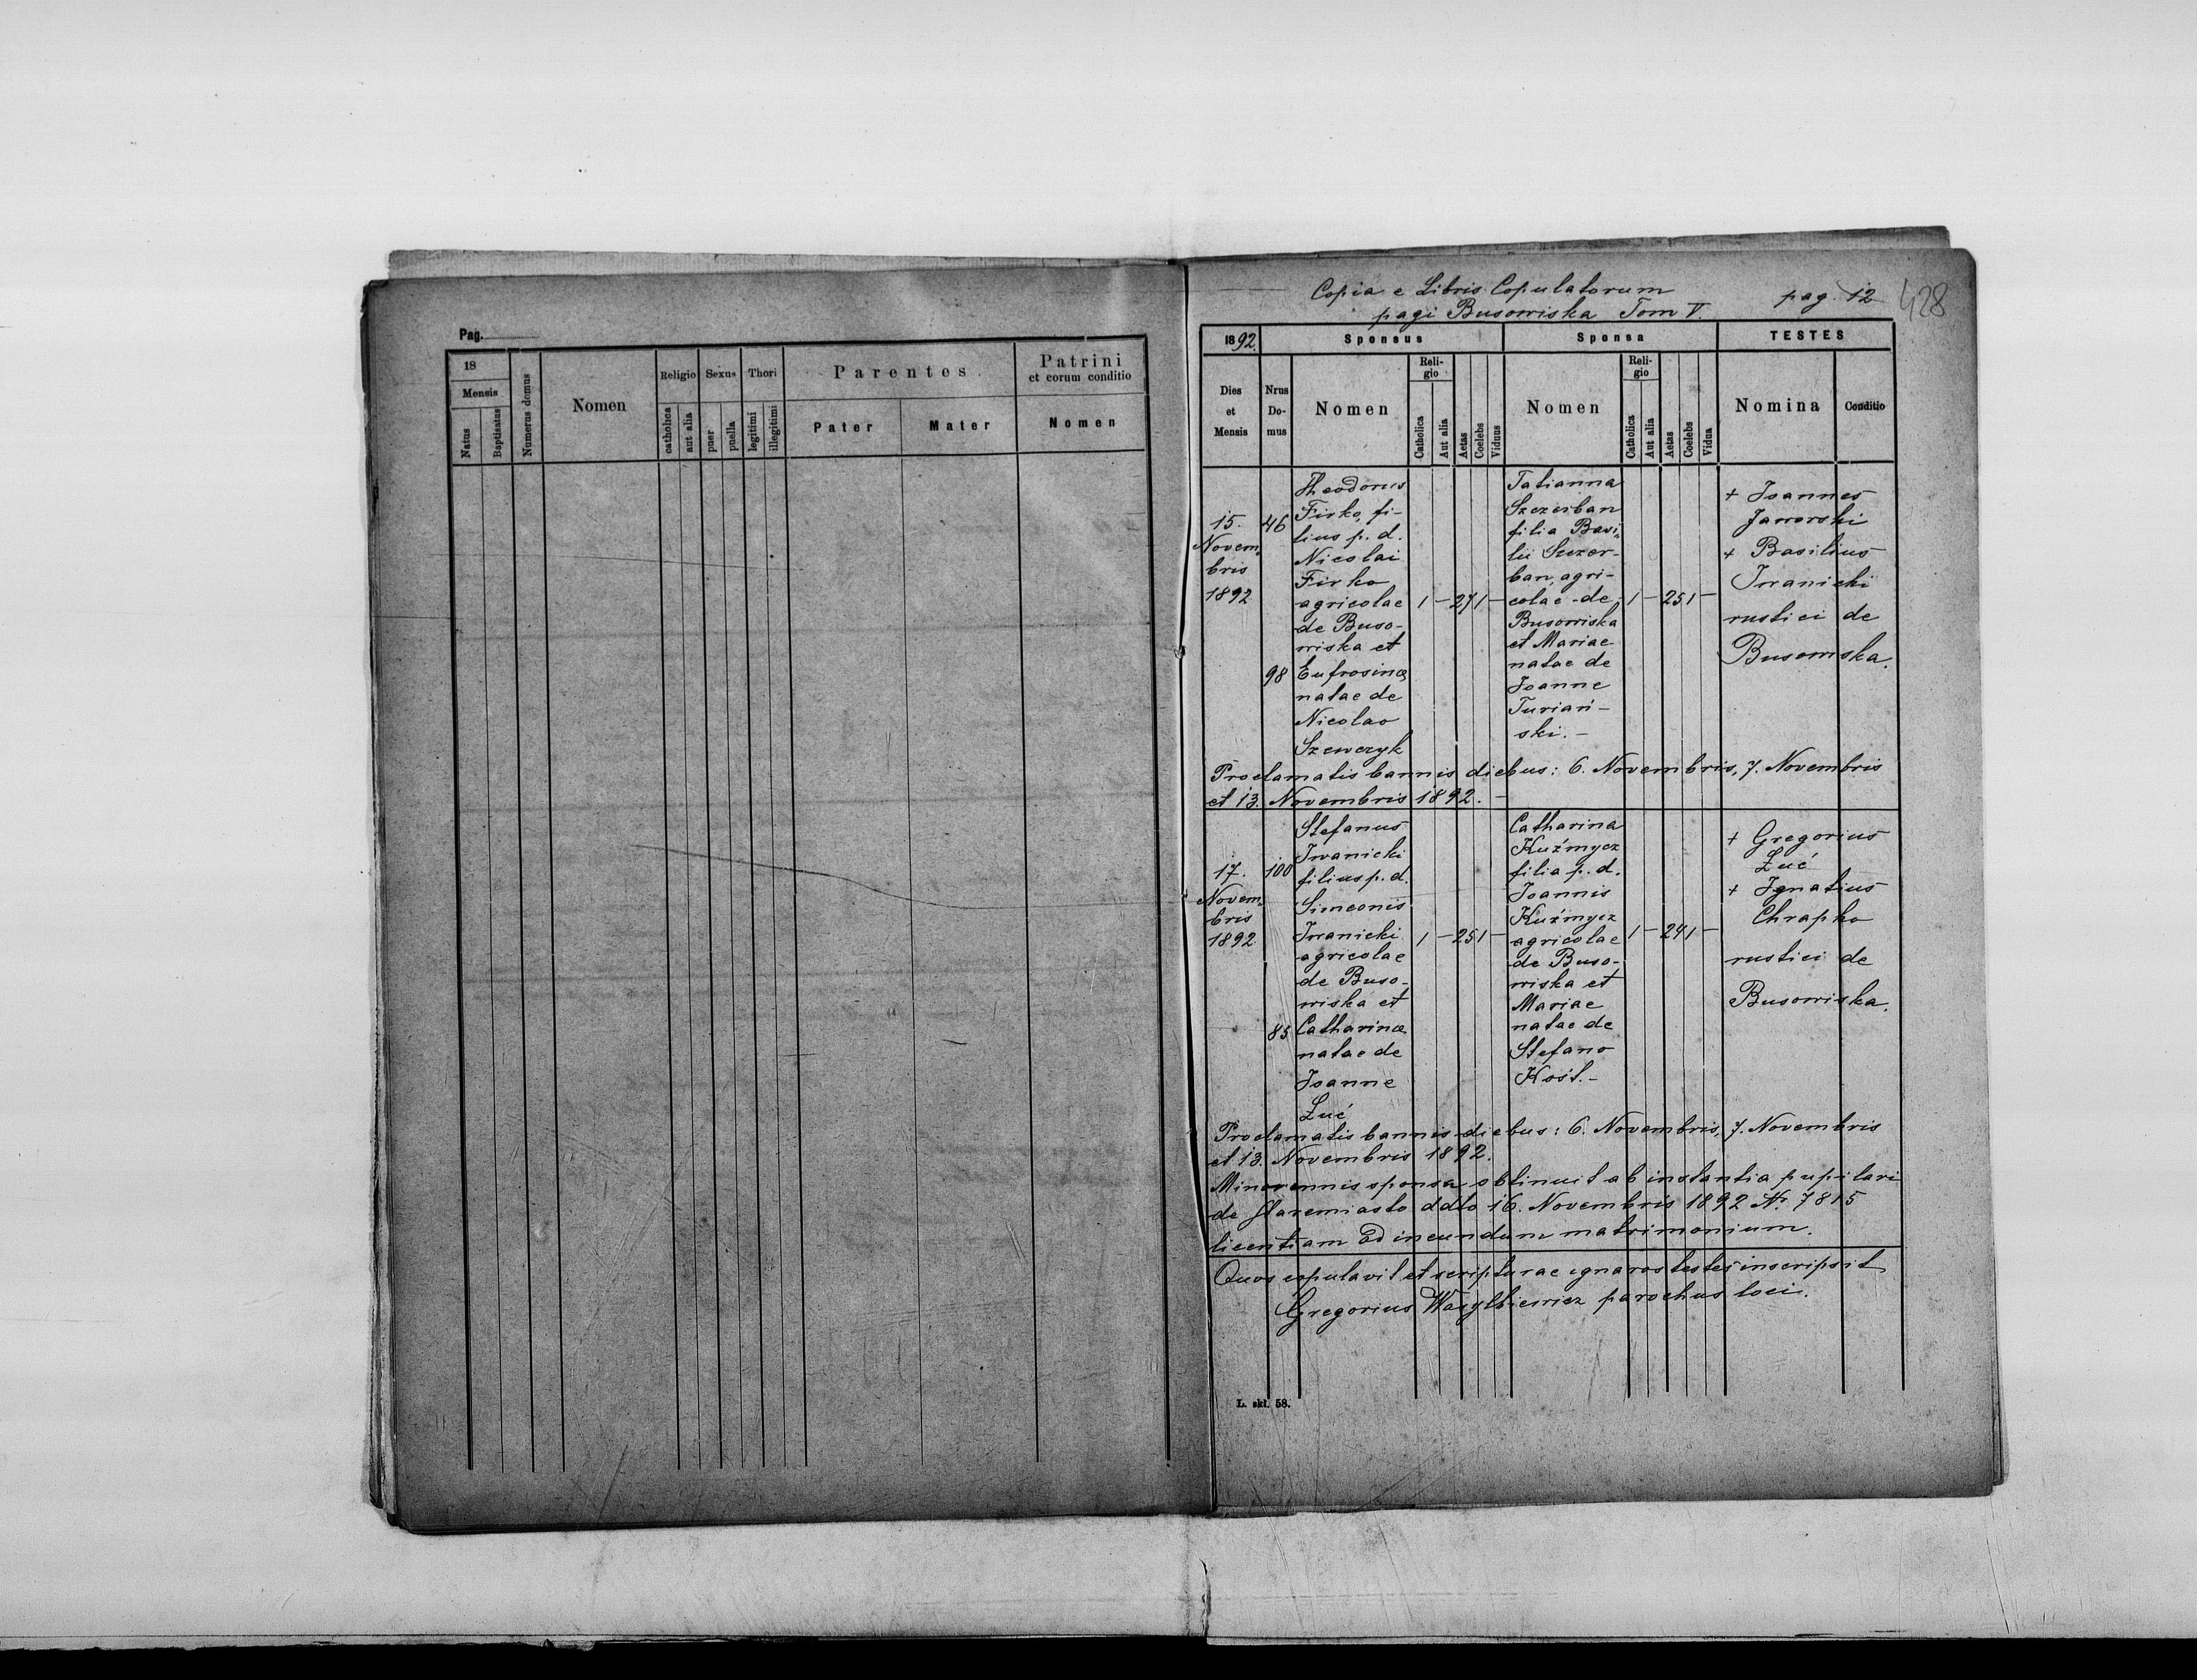 Pag.
18
Mensis
Natus
Baptisatus
Numerus domus
Nomen
Religio
catholica
aut alia
Sexus
puer
puella
Thori
legitimi
illegitimi
Parentes
Pater
Mater
Patrini
et eorum conditio
Nomen
Copia e Libris Copulatorum
pagi Busowiska Tom V.
pag. 12
428
1892.
Sponsus
Sponsa
TESTES
Dies
et
Mensis
Nrus
Do-
mus
Nomen
Reli-
gio
Catholica
Aut alia
Aetas
Coelebs
Viduus
Nomen
Reli-
gio
Catholica
Aut alia
Aetas
Coelebs
Vidua
Nomina
Conditio
15.
Novem-
bris
1892
46
98
Theodorus
Firko, fi-
lius p. d.
Nicolai
Firko
agricolae
de Buso-
wiska et
Eufrosinae
natae de
Nicolao
Szewczyk
1 – 27 1 –
Tatianna
Szczerban
filia Basi-
lii Szczer-
ban, agri-
colae de
Busowiska
et Mariae
natae de
Joanne
Turiań-
ski. –
1 – 25 1 –
+ Joannes
Jaworski
+ Basilius
Iwanicki
rustici de
Busowiska.
Proclamatis bannis diebus: 6. Novembris, 7. Novembris
et 13. Novembris 1892. –
17.
Novem-
bris
1892
100
85
Stefanus
Iwanicki
filius p. d.
Simeonis
Iwanicki
agricolae
de Buso-
wiska et
Catharinae
natae de
Joanne
Łuć
1 – 25 1 –
Catharina
Kuźmycz
filia p. d.
Joannis
Kuźmycz
agricolae
de Buso-
wiska et
Mariae
natae de
Stefano
Kość. –
1 – 24 1 –
+ Gregorius
Łuć
+ Ignatius
Chrapko
rustici de
Busowiska.
Proclamatis bannis diebus: 6. Novembris, 7. Novembris
et 13. Novembris 1892.
Minorennis sponsa obtinuit ab instantia pupilari
de Staremiasto ddto 16. Novembris 1892 Nr. 7815
licentiam ad ineundum matrimonium.
Quos copulavit et scripturae ignaros testes inscripsit
Gregorius Wasylkiewicz parochus loci.
L. skł. 58.